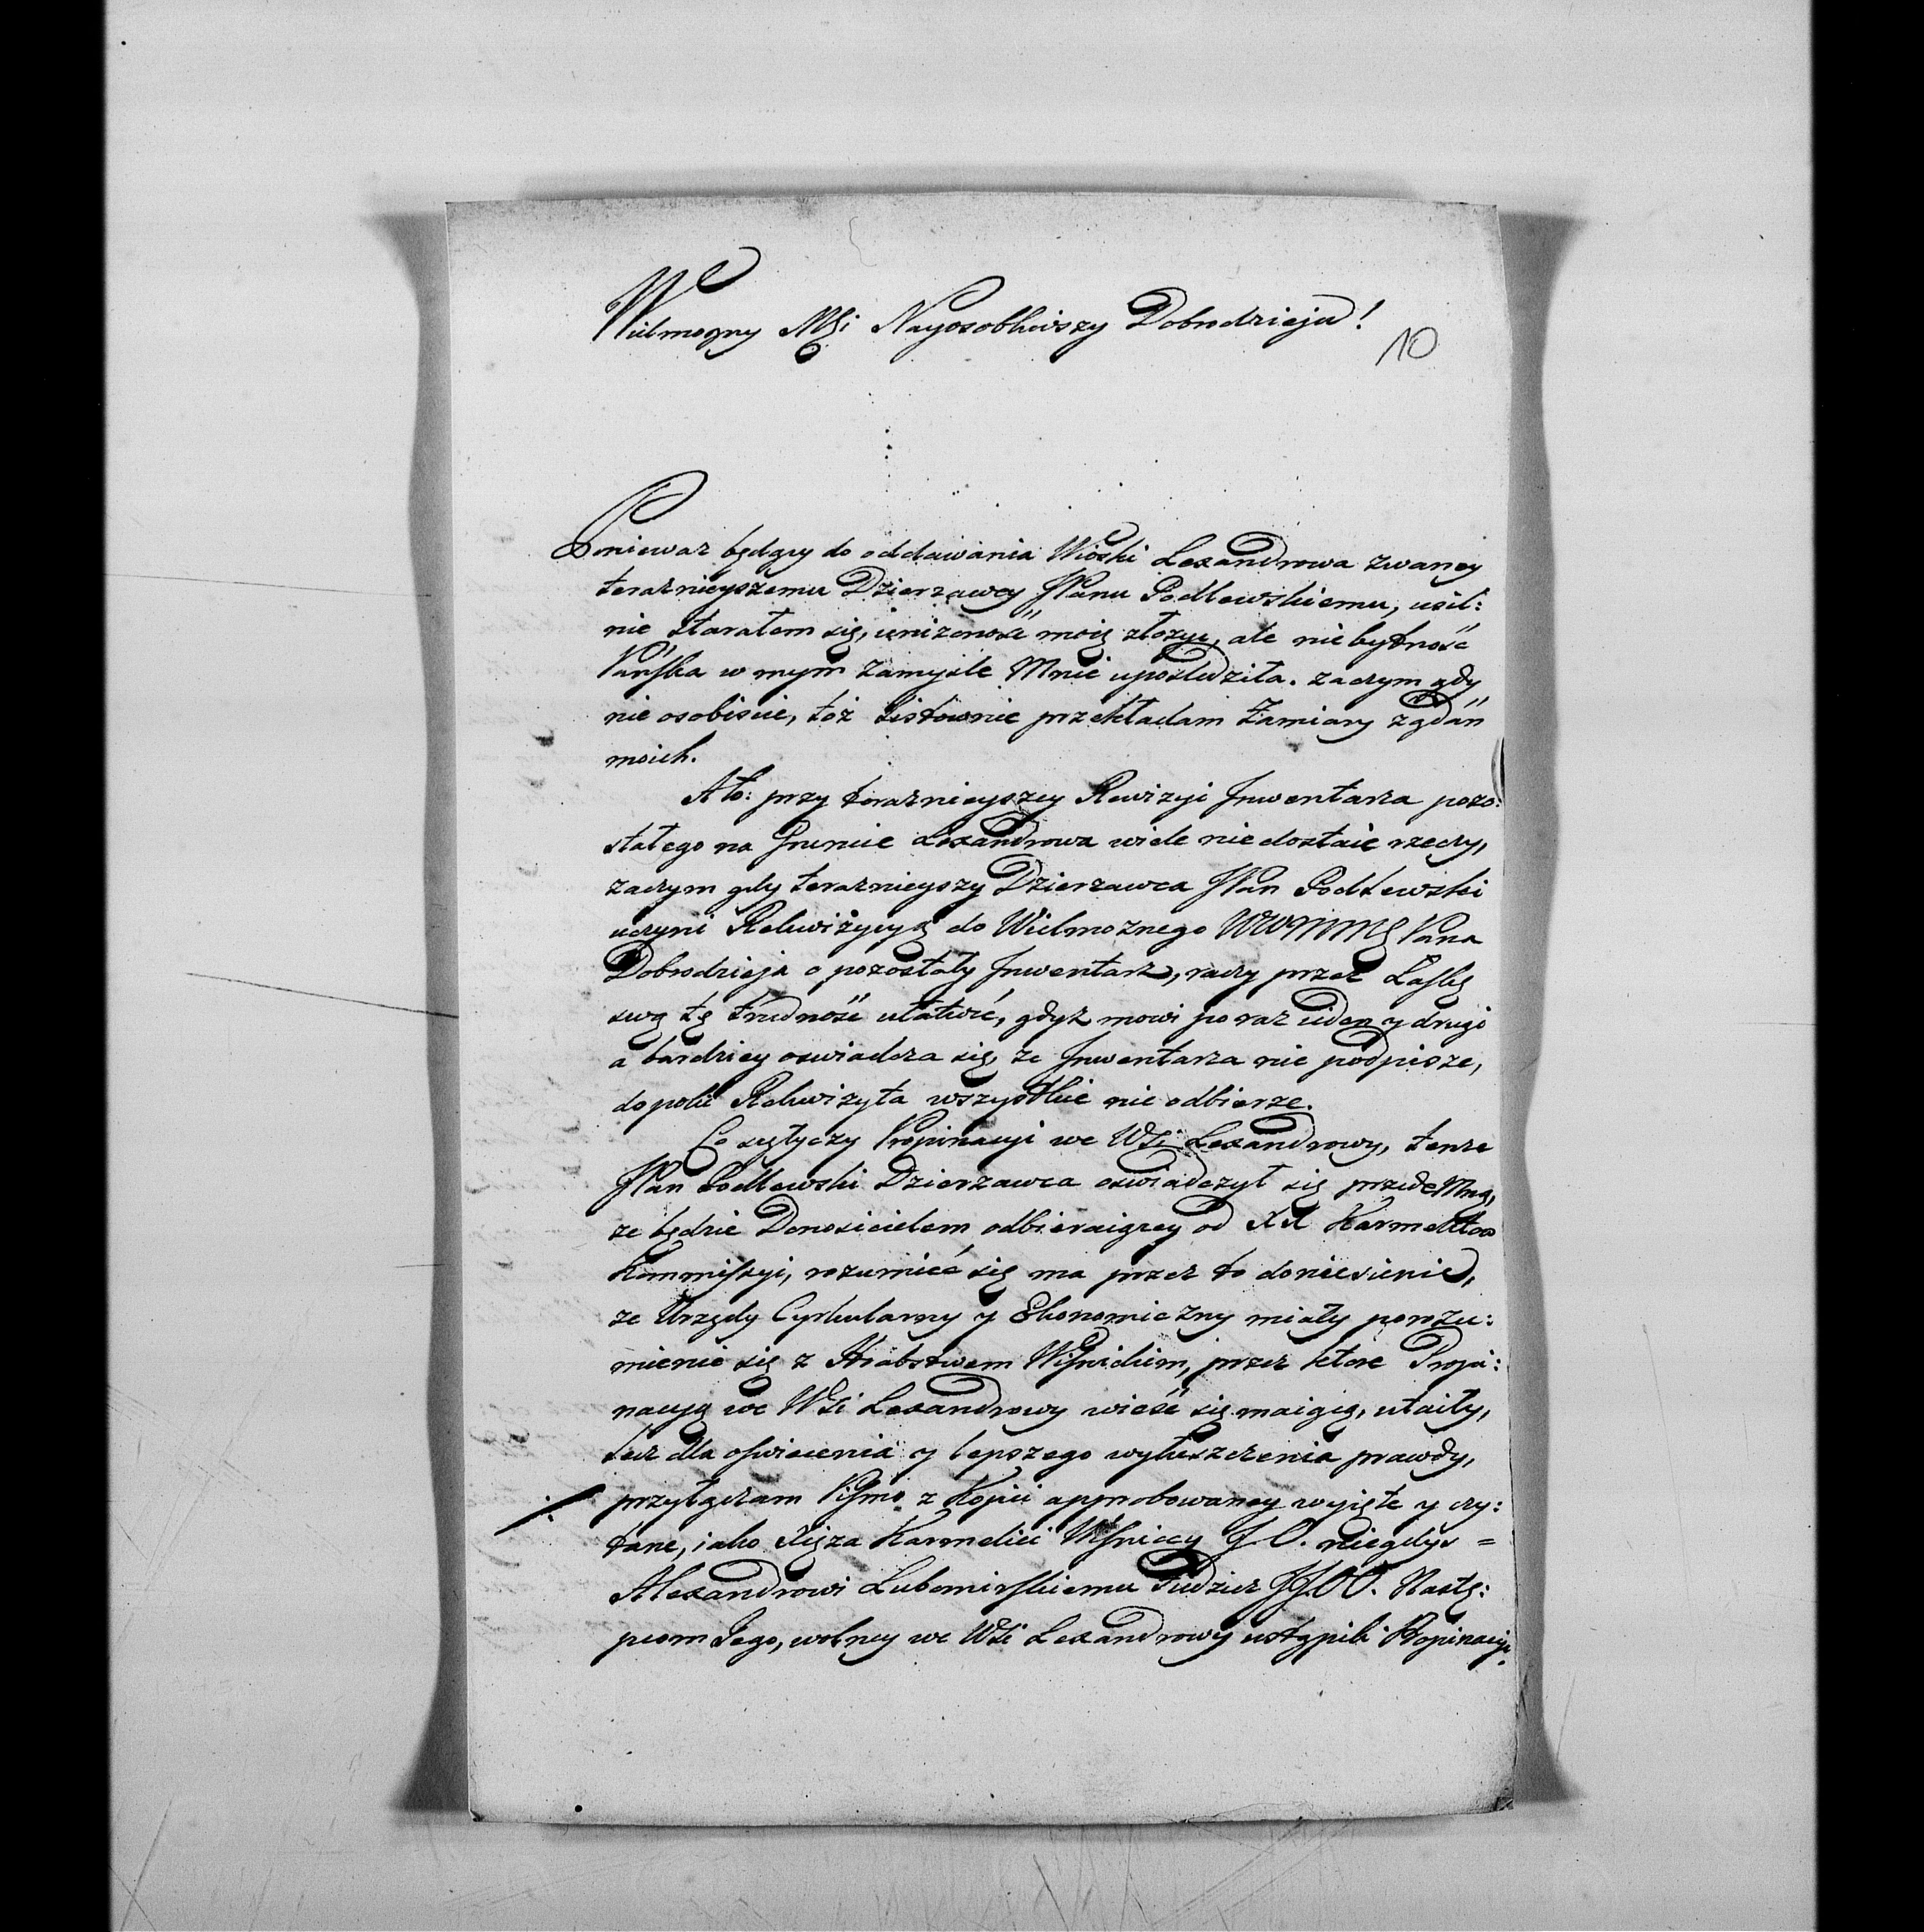 Wielmozny Mći Nayosobliwszy Dobrodzieju!
10
Poniewaz będący do oddawania Wioski Lexandrowa zwaney
teraznieyszemu Dzierzawcy JPanu Podlewskiemu, usil:
nie starałem się, unizoność moię złozyc, ale niebytność
Pańska w mym zamysle Mnie uposledziła. zaczym gdy
nie osobiscie, toż listownie przekładam zamiary zgdań
moich.
Ato: przy teraznieyszey Rewizyi Inwentarza pozo:
stałego na Gruncie Lexandrowa wiele niedostaie rzeczy,
zaczym gdy teraznieyszy Dzierzawca JPan Podlewski
uczyni Rekwizycyą do Wielmoznego Pana
Dobrodzieja o pozostały Inwentarz, raczy przez Łaskę
swą tę trudność ułatwić, gdyż mowi po raz ieden y drugi
a bardziey oswiadcza się, ze Inwentarza nie podpisze,
dopoki Rekwizyta wszystkie nie odbierze.
Co sięłyczy Propinacyi we Wsi Lexandrowy, tenze
JPan Podlewski Dzierzawca oswiadczył się przedeMną,
ze będzie Donosicielem odbieraiącey od XX Karmelitow
Kommissyi, rozumieć się ma przez to doniesienie,
ze Urzędy Cyrkularny y Ekonomiczny miały porozu:
mienie się z Hrabstwem Wisnickim, przez ktore Propi:
nacyą we Wsi Lexandrowy wieść się maiącą, utaiły,
lecz dla oswiecenia y lepszego wyłuszczenia prawdy,
./. przyłączam Pismo z Kopii approbowaney wyięte y czy:
tane, iako Xięza Karmelici Wisniccy J.O. niegdys =
Alexandrowi Lubomirskiemu tudziez JJ.OO. Nastę:
pcom Jego, wolney we Wsi Lexandrowy ustąpili Propinacyi.